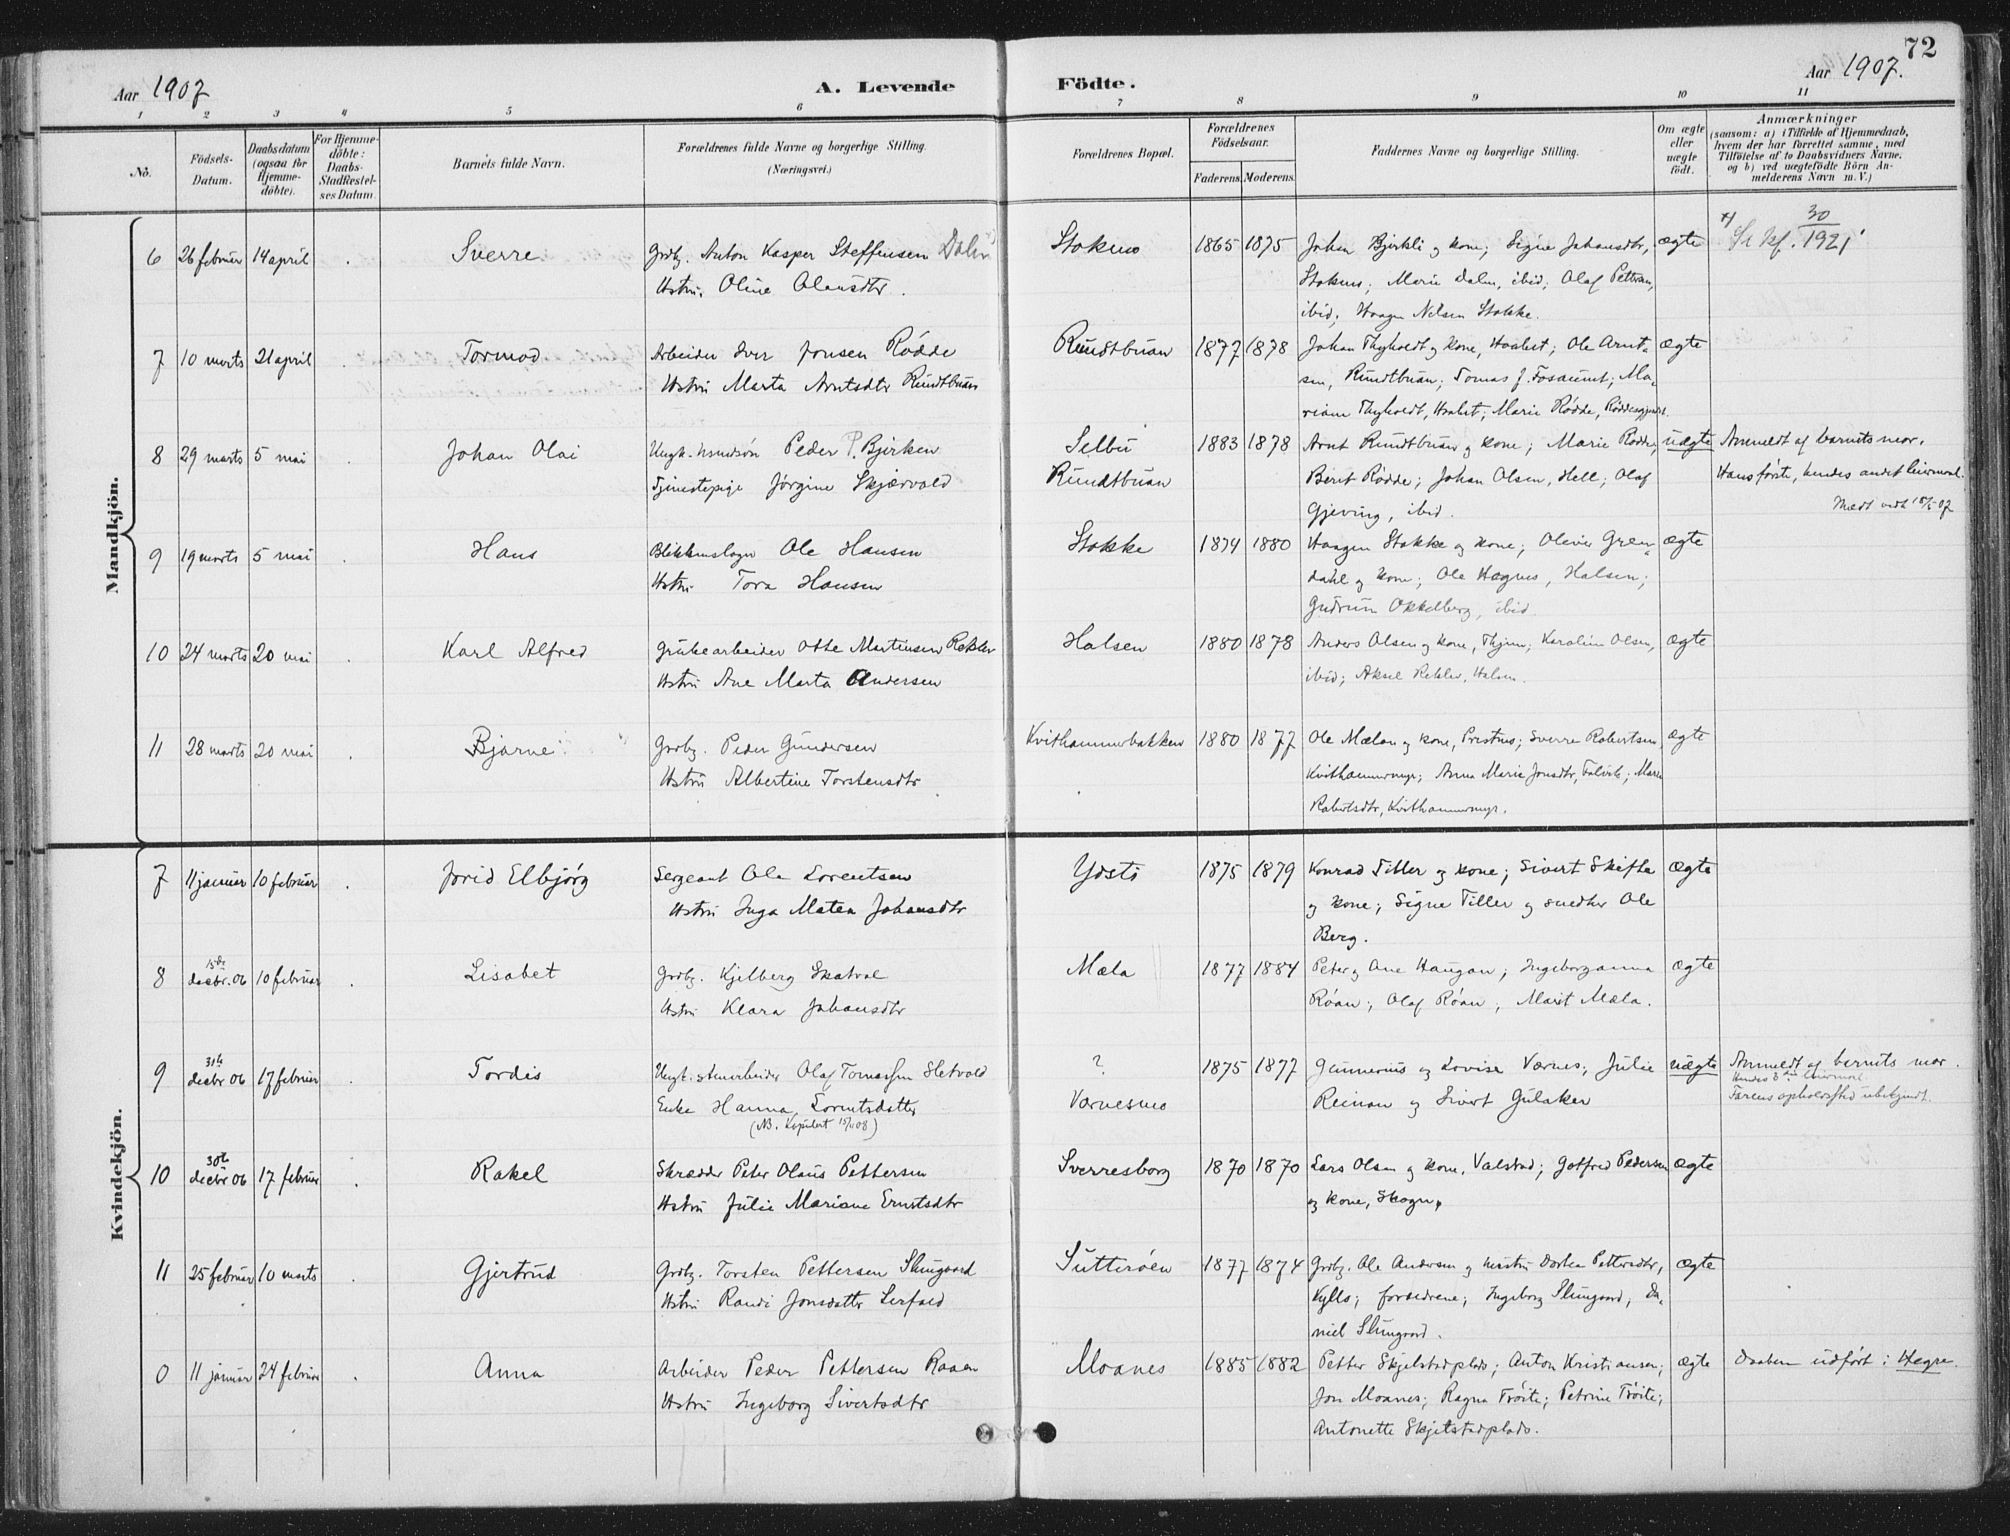 72
Aar 1907
A. Levende
Födte.
Aar 1907.
1 2 3 4 5 6 7 8 9 10 11
No.
Födsels-
Datum.
Daabsdatum
(ogsaa for
Hjemme-
döbte).
For Hjemme-
döbte:
Daabs-
Stadfestel-
ses Datum.
Barnets fulde Navn.
Forældrenes fulde Navne og borgerlige Stilling.
(Næringsvei.)
Forældrenes Bopæl.
Forældrenes
Födselsaar.
Faderens. Moderens.
Faddernes Navne og borgerlige Stilling.
Om ægte
eller
uægte
födt.
Anmærkninger
(saasom: a) i Tilfælde af Hjemmedaab,
hvem der har forrettet samme, med
Tilföielse af to Daabsvidners Navne.
og b) ved uægtefödte Börn An-
melderens Navn m. V.)
Mandkjön.
6 26 februar 14 april Sverre Grdbr. Anton Kasper Steffensen Dalen Stokmo 1865 1875 Johan Bjørkli og kone; Signe Johansdtr, ægte
30
Se kf. 1921
Hstru. Oline Olausdtr. Stokmo; Marie Dalen, ibid; Olaf Pettersen,
ibid; Haagen Nilsen Stokke.
7 10 marts 21 april Tormod Arbeider Iver Jonsen Rødde Rundtbuan 1877 1878 Johan Thyholdt og kone, Haabet; Ole Arnt- ægte
Hstru Marta Arntsdtr Rundtbuan sen, Rundtbuan; Tomas J. Fosaunet; Ma-
riane Thyholdt, Haabet; Marie Rødde,
8 29 marts 5 mai Johan Olai Ungk. Peder P. Bjerken Selbu 1883 1878 Arnt Rundtbuan og kone; Marie Rødde; uægte Anmeldt af barnets mor.
Tjenestepige Jørgine Skjærvold Rundtbuan Berit Rødde; Johan Olsen, Hell; Olaf Hans første, hendes andet leiermaal.
Gjeving, ibid.
9 19 marts 5 mai Hans Blikkenslager Ole Hansen Stokke 1874 1880 Haagen Stokke og kone; Oliver Gren- ægte
Hstru Tora Hansen dahl og kone; Ole Hognes, Halsen;
Gudrun Okkelberg, ibid
10 24 marts 20 mai Karl Alfred Grubearbeider Otto Martinsen Rekler Halsen 1880 1878 Anders Olsen og kone, Karoline Olsen, ægte
Hstru Ane Marta Andersen ibid; Aksel Rekler, Halsen.
11 28 marts 20 mai Bjarne Grdbr. Peder Gundersen Kvithammerbakken 1880 1877 Ole Mælan og kone, Prestmo; Sverre Robertsen, ægte
Hstru Albertine Torstensdtr Kvithammermyr; Anna Marie Jonsdtr, Marie
Robertsdtr, Kvithammermyr.
Kvindekjön.
7 11 januar 10 februar Jorid Elbjørg Sergeant Ole Lorentsen Ydsti 1875 1879 Konrad Tiller og kone; Sivert Skifte ægte
Hstru Inga Matea Johansdtr og kone; Signe Tiller og snedker Ole
Berg.
8 15de decbr. 06 10 februar Lisabet Grdbr. Kjelberg Skatval Mæla 1877 1884 Peter og Ane Haugan; Ingeborganna ægte
Hstru Klara Johansdtr Røan; Olaf Røan; Marit Mæla.
9 31te decbr 06 17 februar Tordis Ungk. stenarbeider Olaf Tomassen Hletvold ? 1875 1877 Gunnerius og Lovise Værnes; Julie uægte Anmeldt af barnets mor.
Hendes 3die leiermaal.
Enke Hanna Lorentsdatter Værnesmo Reinan og Sivert Gulaker Farens opholdssted ubekjendt.
(NB. Kopulert 08)
10 30te decbr 06 17 februar Rakel Skrædder Peter Olaus Pettersen Sverresborg 1870 1870 Lars Olsen og kone, Valstad; Gotfred Pedersen ægte
Hstru Julie Mariane Ernstsdtr og kone, Skogn.
11 25 februar 10 marts Gjertrud Grdbr. Torsten Pettersen Slungaard Sutterøen 1877 1874 Grdbr. Ole Andersen og hustru Dortea Pettersdtr, ægte
Hstru Randi Jonsdatter Leifald Kyllo; forældrene; Ingeborg Slungaard, Da-
niel Slungaard.
0 11 januar 24 februar Anna Arbeider Peder Pettersen Raaen Moanes 1885 1882 Petter Skjelstadplads; Anton Kristiansen; ægte Daaben udført i Hegre.
Hstru Ingeborg Sivertsdtr Jon Moanes; Ragna Trøite; Petrine Trøite;
Antonette Skjelstadplads.